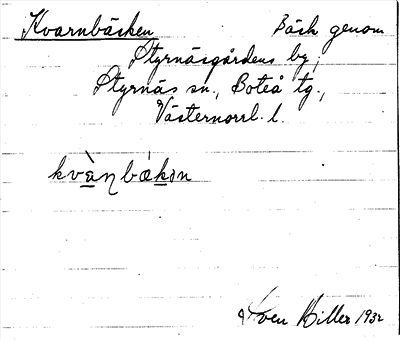 Kvarnbäcken Bäck genom
Styrnäsgårdens by,
Styrnäs sn., Boteå tg.,
Västernorrl. l.
kvàṇbǽkən
Sven Hiller 1932